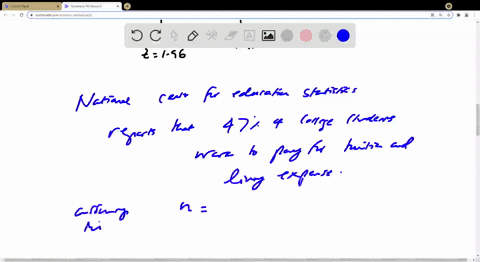 z = 1.96
National center for education statistics
reports that 47% of college students
work to pay for tuition and
living expense.
assuming n =